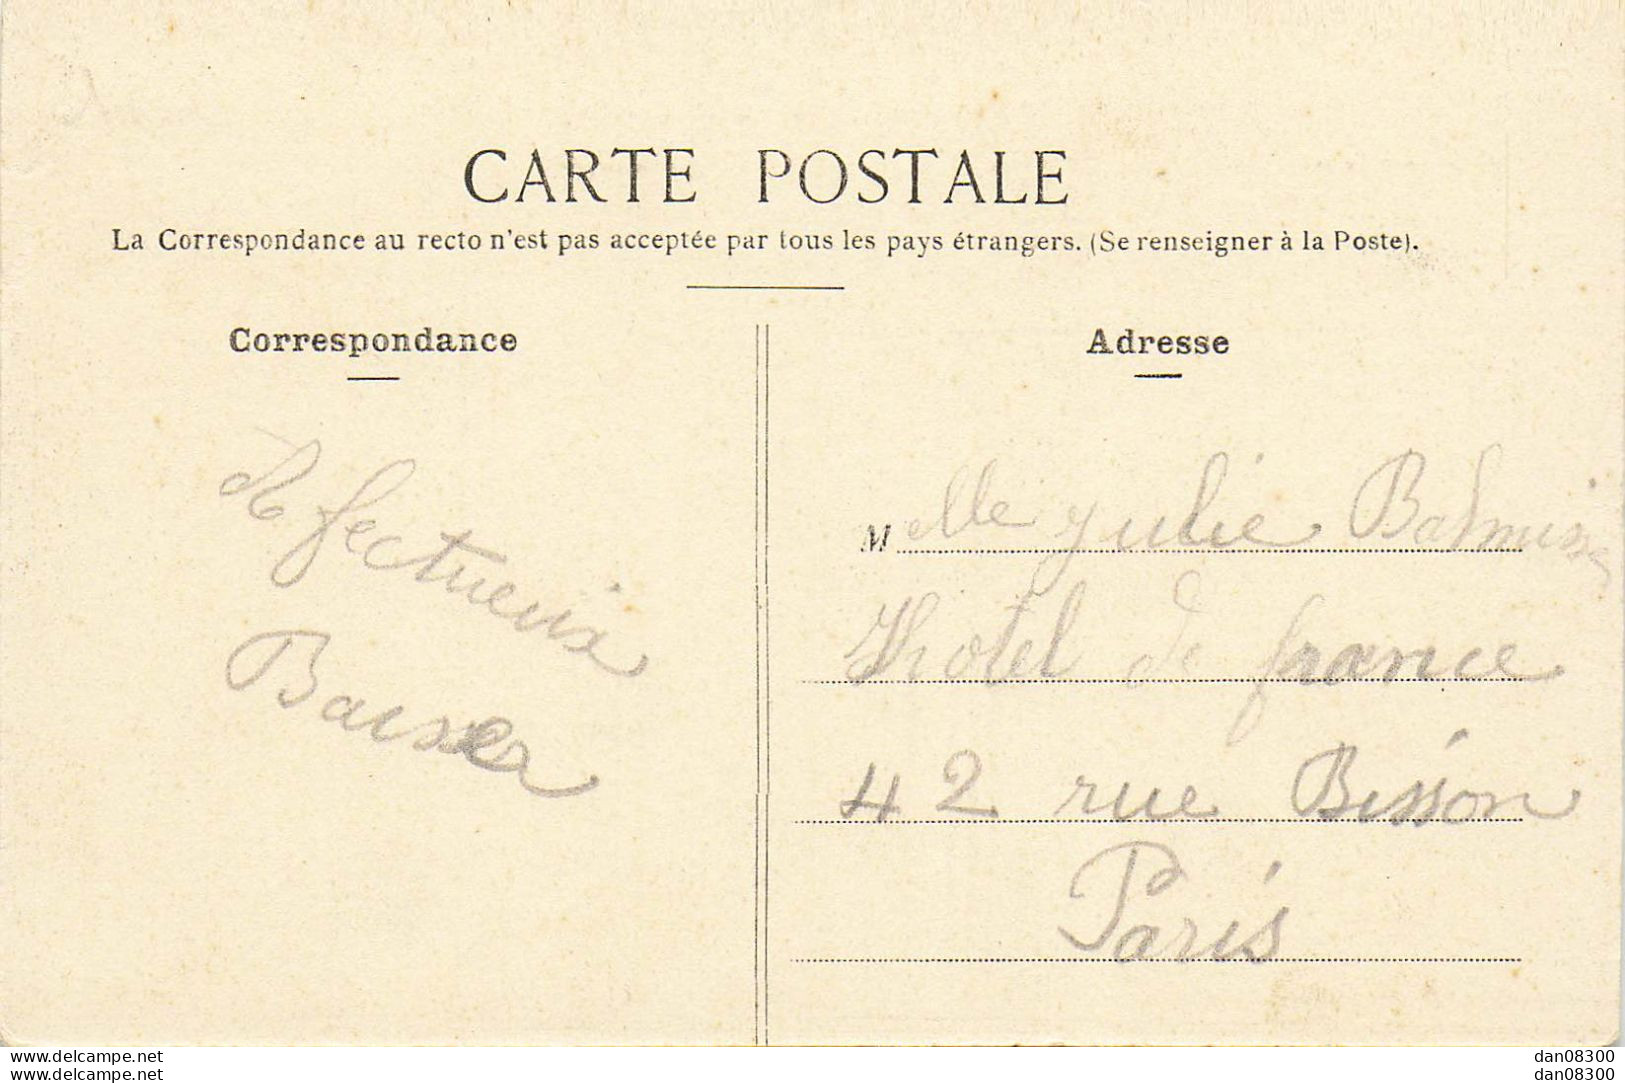 CARTE POSTALE
La Correspondance au recto n'est pas acceptée par tous les pays étrangers. (Se renseigner à la Poste).
Correspondance
Affectueux
Adresse
Melle Julie
Hotel de france
42 rue Bisson
Paris
www.delcampe.net
www.delcampe.net
dan08300
dan08300